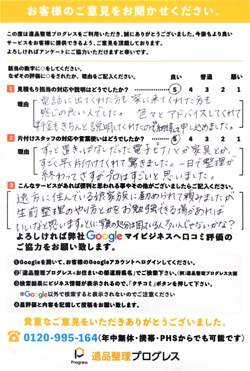 お客様のご意見をお聞かせください。
この度は遺品整理プログレスをご利用いただき、誠にありがとうございました。今後もより良い
サービスをお客様に提供できるよう、ご意見を頂戴しております。
よろしければアンケートにご協力いただけますと幸いです。
該当の数字に○をしてください。
なぜその評価に○をされたか、理由をご記入ください。
良い 普通 悪い
1 見積もり担当の対応や説明はどうでしたか？
5 4 3 2 1
理由
電話に出てくれた方も家に来てくれた方も
感じの良い人でした。色々とアドバイスしてくれて
料金もきちんと説明してくれたので
申し込めました。
2 片付けスタッフの対応や言葉使いはどうでしたか？
5 4 3 2 1
理由
ずっと置きっぱなしだった電子ピアノや家具とか、
すごく早く片付けてくれて驚きました。一日で整理が
終わってさすがプロはすごいと思いました。
3 こんなサービスがあれば便利と思われる事やその他がございましたらご記入ください。
遠方に住んでいる
生前整理のやり方とかをお勉強できる場があれば
いいなと思います。
よろしければ弊社Googleマイビジネスへ口コミ評価の
ご協力をお願い致します。
❶Googleを開いて、お客様のGoogleアカウントへログインしてください。
❷「遺品整理プログレス+お住まいの都道府県名」でご検索下さい。
❸検索結果にビジネス情報が表示されるので、「クチコミ」ボタンを押して下さい。
※Google以外で検索すると表示されないのでご注意ください
❹星評価と内容を記載して投稿をお願い致します。
貴重なご意見をいただきありがとうございました。
0120-995-164(年中無休・携帯・PHSからでも可能です)
Progress 遺品整理プログレス